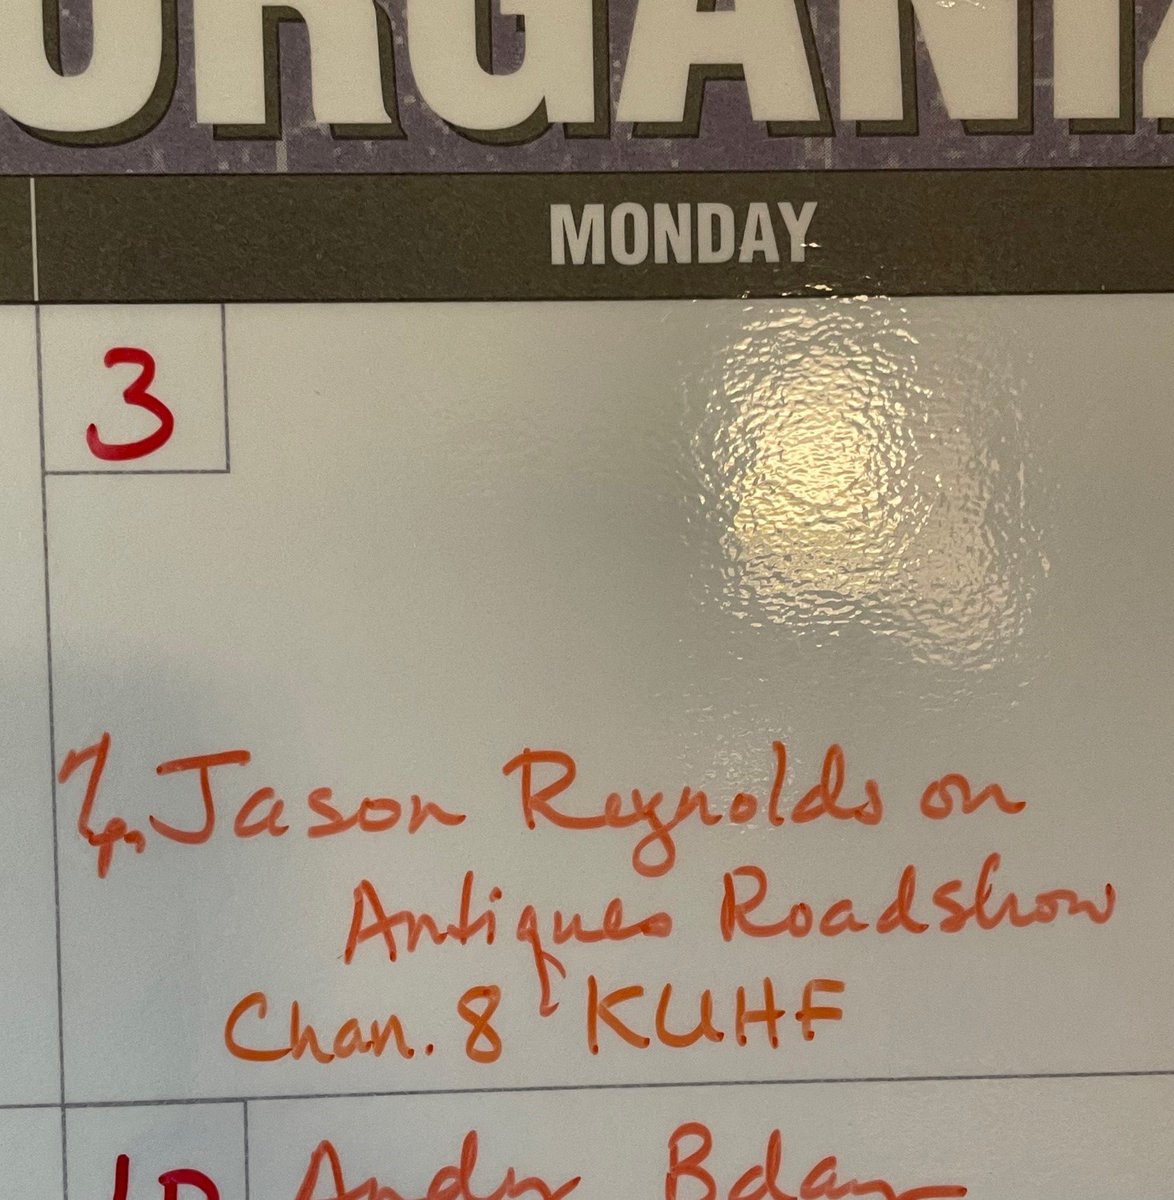 ORGANIZ
MONDAY
3
7p. Jason Reynolds on
Antiques Roadshow
Chan. 8 KUHF
10
Andy Bday